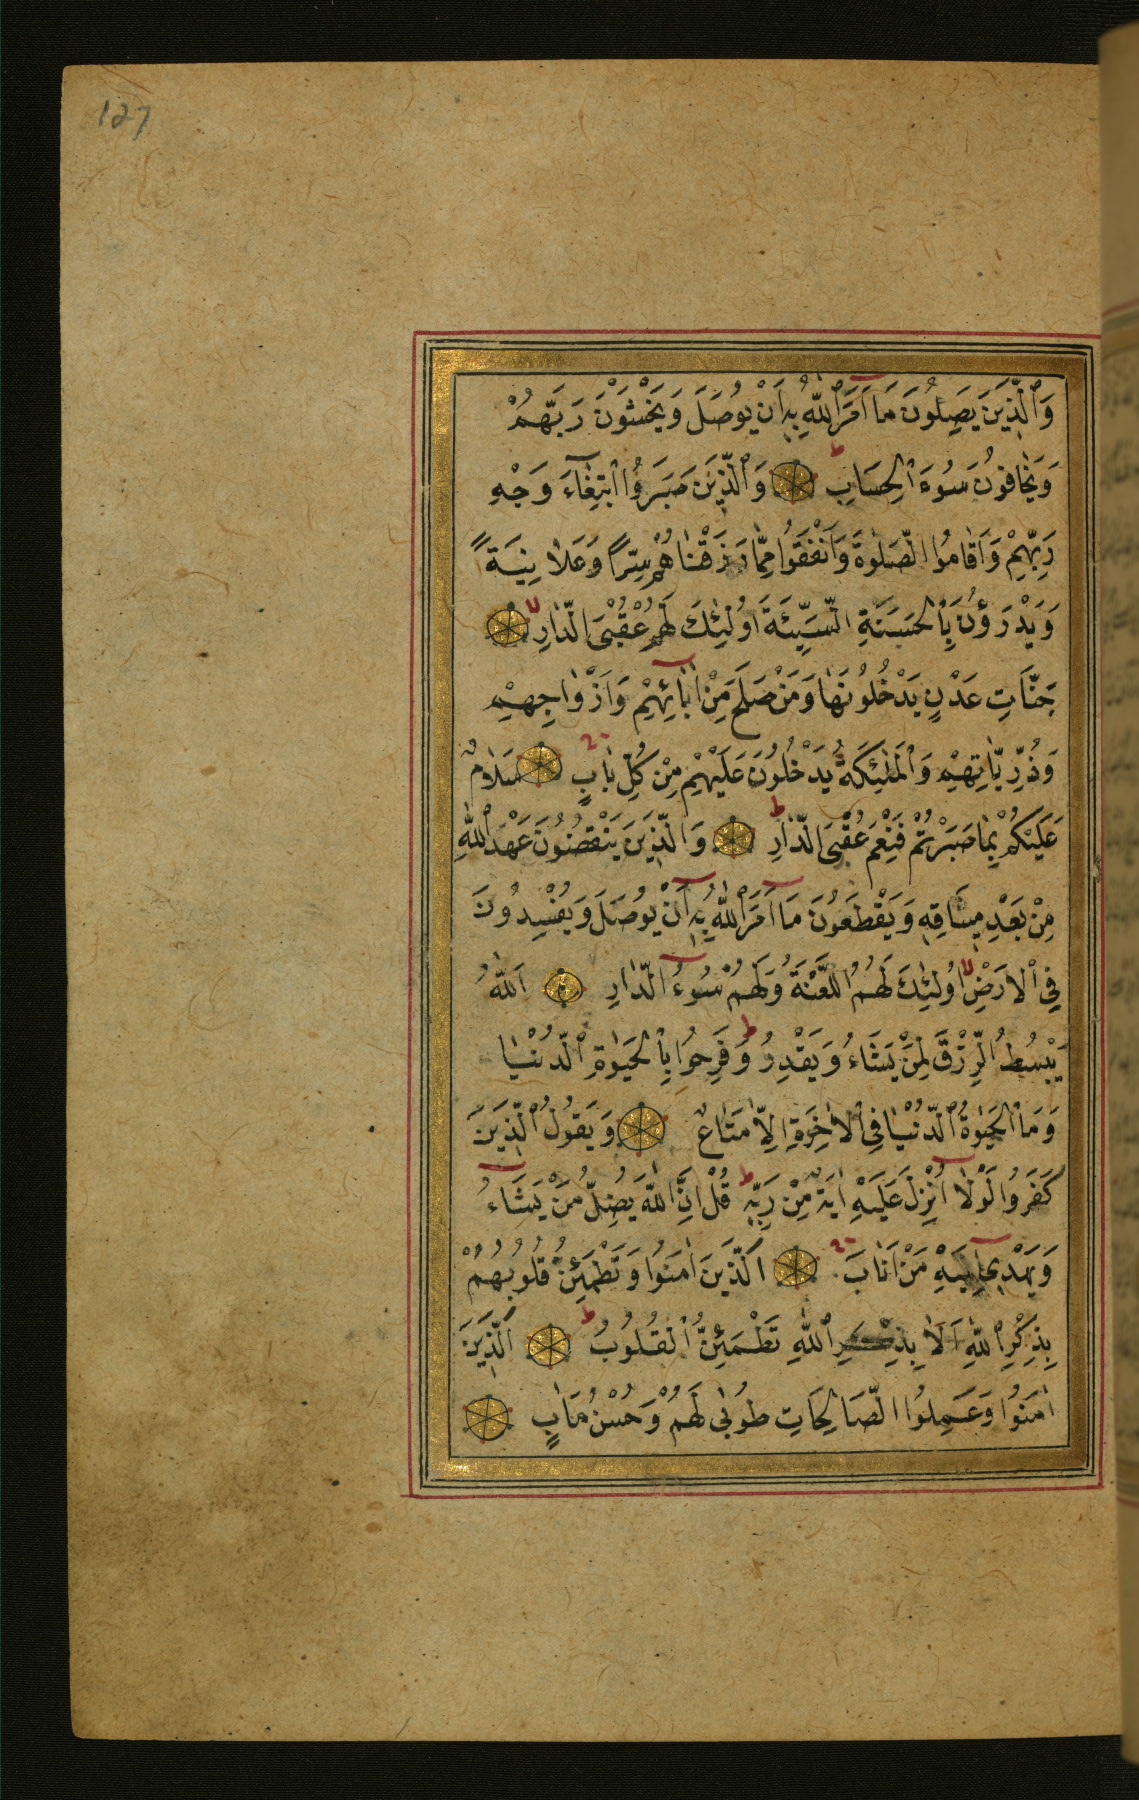 127
وَالَّذِينَ يَصِلُونَ مَا اَمَرَ اللّٰهُ بِهِ اَنْ يُوصَلَ وَيَخْشَوْنَ رَبَّهُمْ
وَيَخَافُونَ سُوءَ الْحِسَابِ ط وَالَّذِينَ صَبَرُوا ابْتِغَآءَ وَجْهِ
رَبِّهِمْ وَاَقَامُوا الصَّلٰوةَ وَاَنْفَقُوا مِمَّا رَزَقْنَاهُمْ سِرًّا وَعَلَانِيَةً
وَيَدْرَؤُنَ بِالْحَسَنَةِ السَّيِّئَةَ اُولٰئِكَ لَهُمْ عُقْبَى الدَّارِ لا
جَنَّاتِ عَدْنٍ يَدْخُلُونَهَا وَمَنْ صَلَحَ مِنْ اٰبَائِهِمْ وَاَزْوَاجِهِمْ
وَذُرِّيَّاتِهِمْ وَالْمَلٰئِكَةُ يَدْخُلُونَ عَلَيْهِمْ مِنْ كُلِّ بَابٍ سَلَامٌ
عَلَيْكُمْ بِمَا صَبَرْتُمْ فَنِعْمَ عُقْبَى الدَّارِ ط وَالَّذِينَ يَنْقُضُونَ عَهْدَ اللّٰهِ
مِنْ بَعْدِ مِيثَاقِهِ وَيَقْطَعُونَ مَا اَمَرَ اللّٰهُ بِهِ اَنْ يُوصَلَ وَيُفْسِدُونَ
فِي الْاَرْضِ لا اُولٰئِكَ لَهُمُ اللَّعْنَةُ وَلَهُمْ سُوءُ الدَّارِ اَللّٰهُ
يَبْسُطُ الرِّزْقَ لِمَنْ يَشَاءُ وَيَقْدِرُ ط وَفَرِحُوا بِالْحَيٰوةِ الدُّنْيَا
وَمَا الْحَيٰوةُ الدُّنْيَا فِي الْاٰخِرَةِ اِلَّا مَتَاعٌ وَيَقُولُ الَّذِينَ
كَفَرُوا لَوْلَا اُنْزِلَ عَلَيْهِ اٰيَةٌ مِنْ رَبِّهِ ط قُلْ اِنَّ اللّٰهَ يُضِلُّ مَنْ يَشَاءُ
وَيَهْدِي اِلَيْهِ مَنْ اَنَابَ اَلَّذِينَ اٰمَنُوا وَتَطْمَئِنُّ قُلُوبُهُمْ
بِذِكْرِ اللّٰهِ اَلَا بِذِكْرِ اللّٰهِ تَطْمَئِنُّ الْقُلُوبُ ط اَلَّذِينَ
اٰمَنُوا وَعَمِلُوا الصَّالِحَاتِ طُوبٰى لَهُمْ وَحُسْنُ مَاٰبٍ